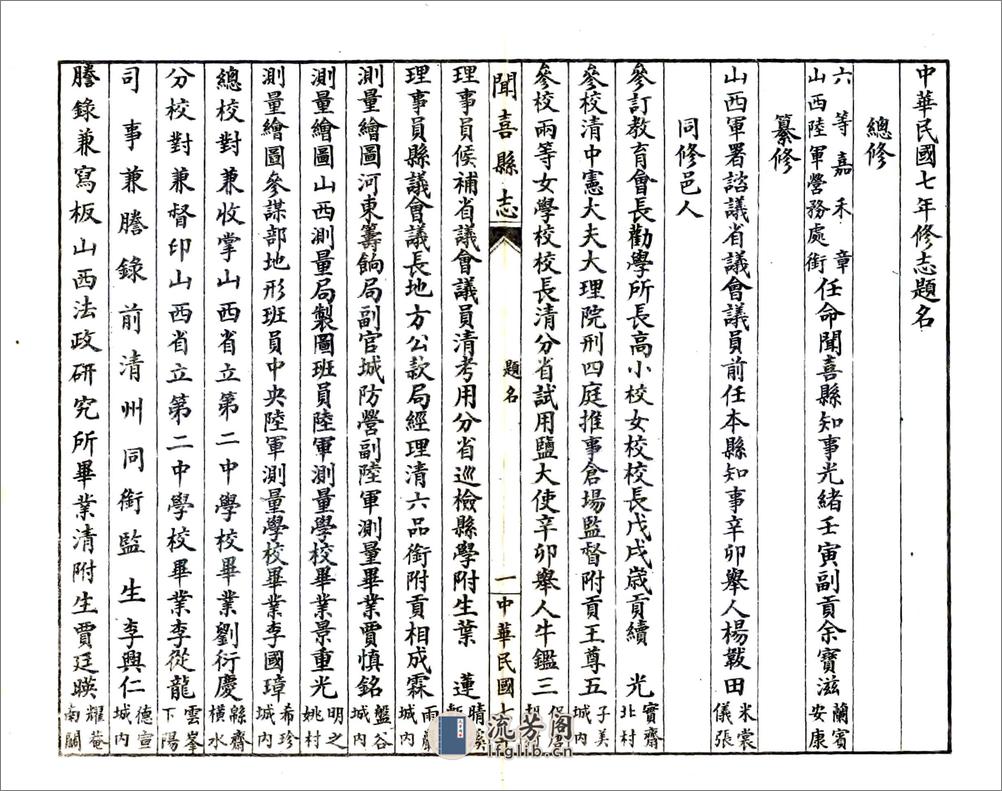 中華民國七年修志題名
總修
六等嘉禾章山西陸軍營務處銜任命聞喜縣知事光緒壬寅副貢余寶滋蘭賓安康
纂修
山西軍署諮議省議會議員前任本縣知事辛卯舉人楊韍田米裳儀張
同修邑人
參訂教育會長勸學所長高小校女校校長戊戌歲貢續光實齋北村
參校清中憲大夫大理院刑四庭推事倉場監督附貢王尊五子美城內
參校兩等女學校校長清分省試用鹽大使辛卯舉人牛鑑三
聞喜縣志
題名
一
中華民國七
理事員候補省議會議員清考用分省巡檢縣學附生葉蓮晴溪
理事員縣議會議長地方公款局經理清六品銜附貢相成霖雨城內
測量繪圖河東籌餉局副官城防營副陸軍測量畢業賈慎銘盤谷城內
測量繪圖山西測量局製圖班員陸軍測量學校畢業景重光明之姚村
測量繪圖參謀部地形班員中央陸軍測量學校畢業李國璋希珍城內
總校對兼收掌山西省立第二中學校畢業劉衍慶緜齋橫水
分校對兼督印山西省立第二中學校畢業李從龍雲峯下陽
司事兼謄錄前清州同銜監生李興仁德宣城內
謄錄兼寫板山西法政研究所畢業清附生賈廷暎耀菴南關
流芳阁
lfglib.cn